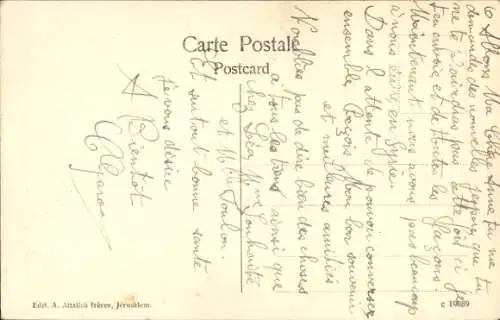 Carte Postale
Postcard
à Athènes. Ma chère Anne, tu me
demandes des nouvelles
me le t'aurais pas cette fois ci je
t'en envoie et de toutes les façons.
Maintenant nous avons pas beaucoup
à nous écrire, en Syrie.
Dans l'attente de pouvoir converser
ensemble, Reçois mon bon souvenir
et meilleures amitiés
N'oublies pas de dire bien des choses
à tous les tiens ainsi que
chez
et Mme Toulon.
Et surtout bonne santé
je vous désire
A Bientôt
Edit. A. Attallah frères, Jérusalem.
c 10889